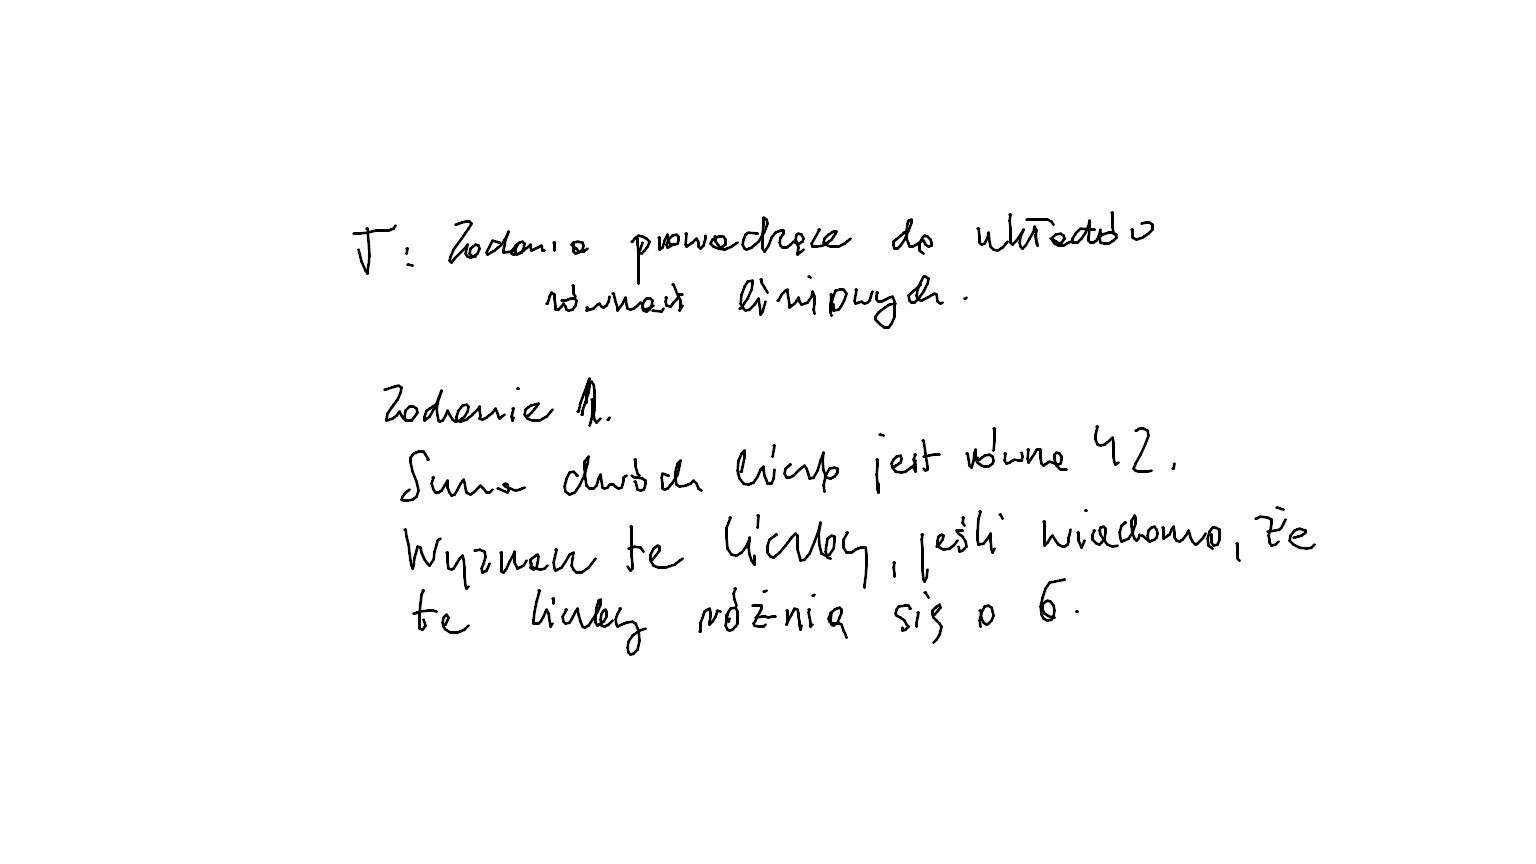 T: Zadania prowadzące do układów
równań liniowych.
Zadanie 1.
Suma dwóch liczb jest równa 42.
Wyznacz te liczby, jeśli wiadomo, że
te liczby różnią się o 6.